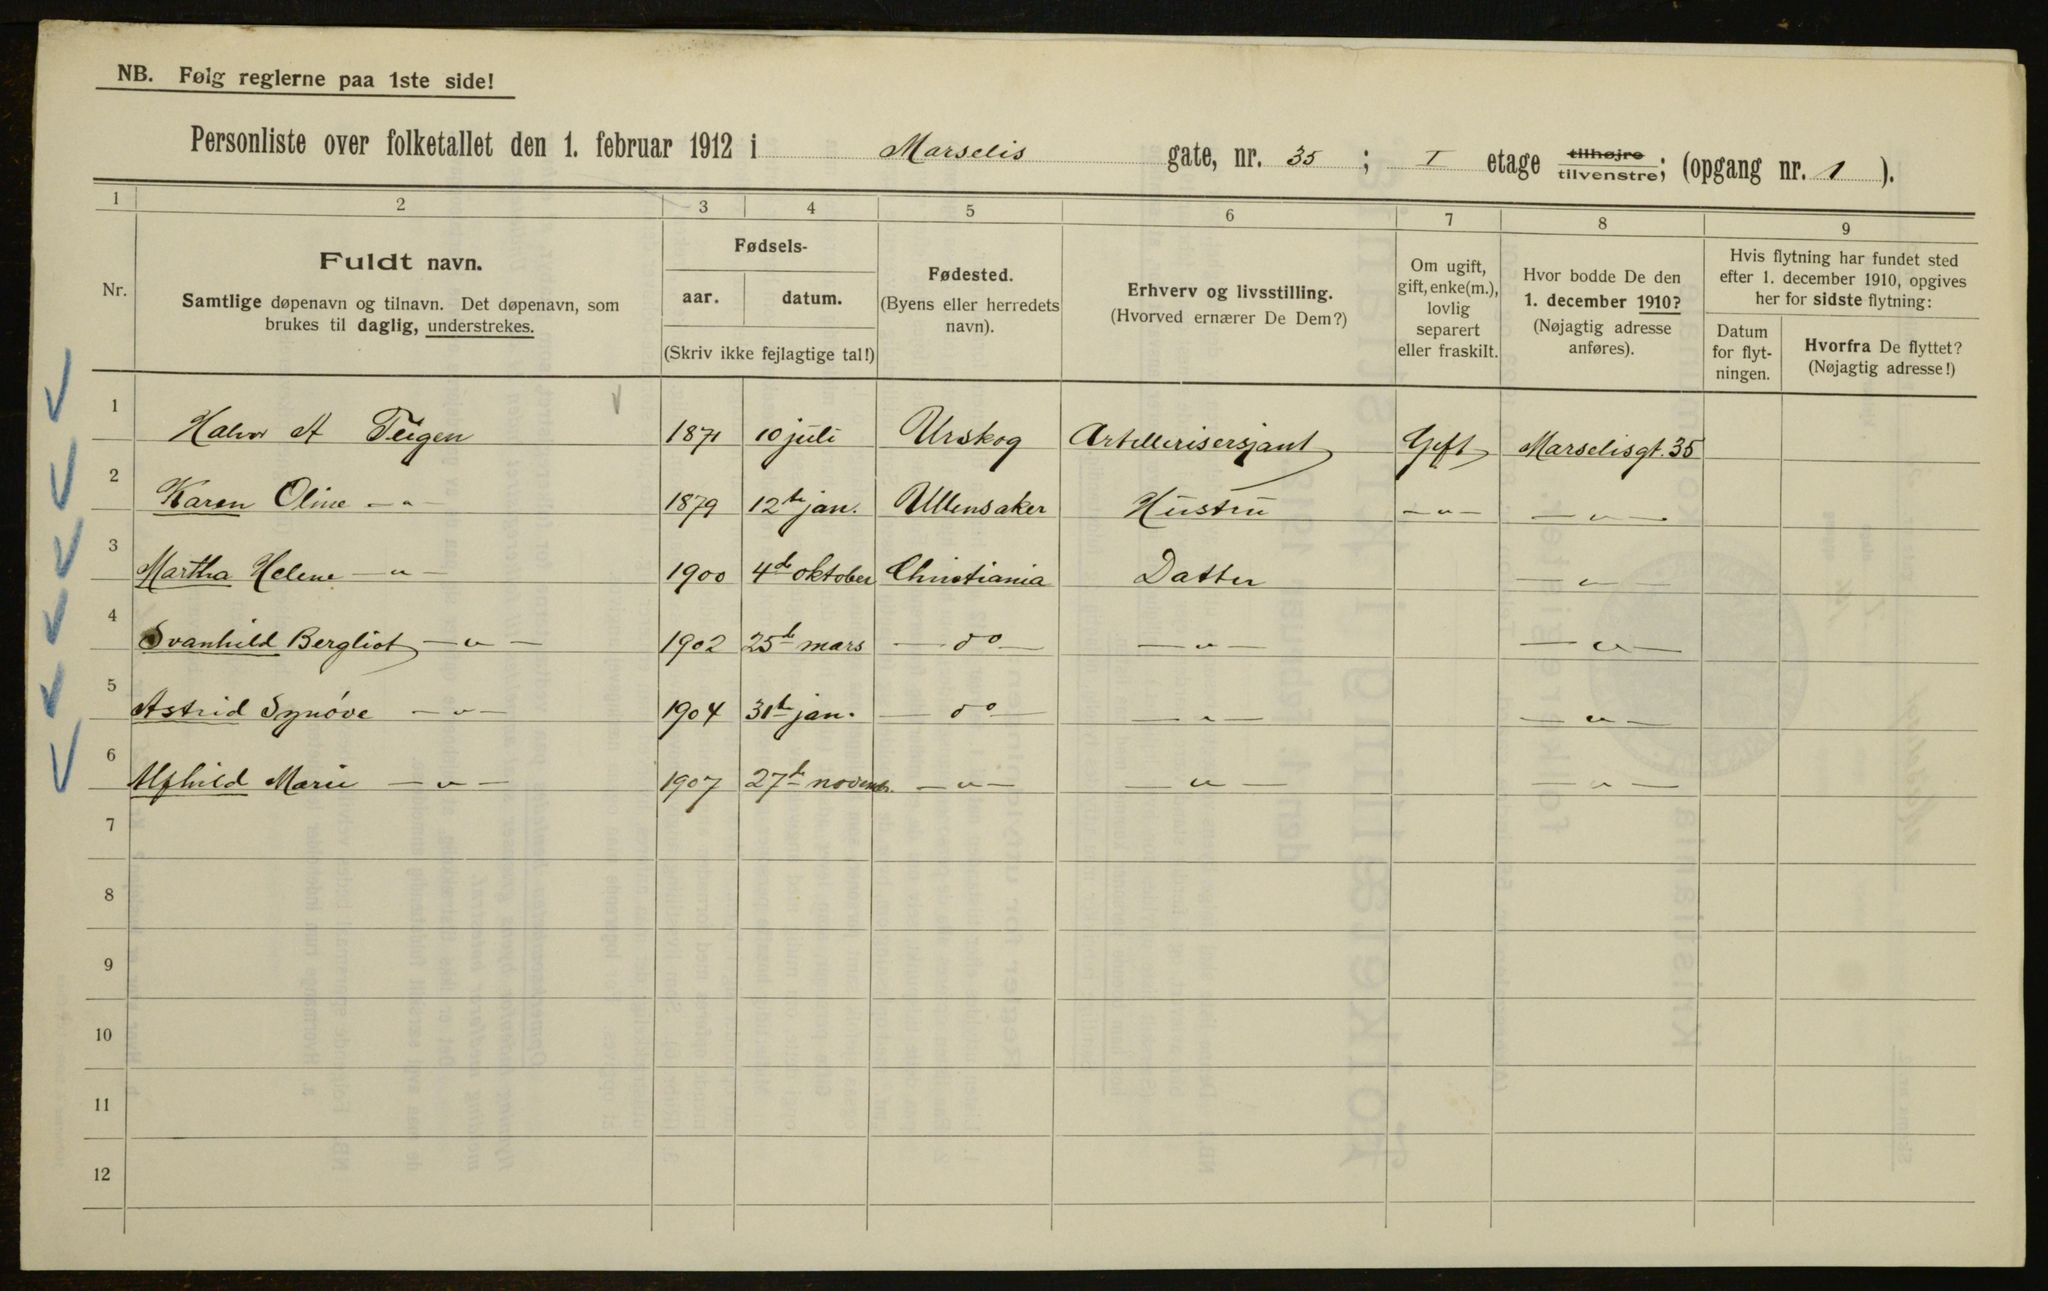 NB. Følg reglerne paa 1ste side!
Personliste over folketallet den 1. februar 1912 i Marselis gate, nr. 35 ; I etage tilhøjre tilvenstre; (opgang nr. 1 ).
1 2 3 4 5 6 7 8 9
Nr.
Fuldt navn.
Samtlige døpenavn og tilnavn. Det døpenavn, som
brukes til daglig, understrekes.
Fødsels-
aar. datum.
(Skriv ikke fejlagtige tal!)
Fødested.
(Byens eller herredets
navn).
Erhverv og livsstilling.
(Hvorved ernærer De Dem?)
Om ugift,
gift, enke(m.),
lovlig
separert
eller fraskilt.
Hvor bodde De den
1. december 1910?
(Nøjagtig adresse
anføres).
Hvis flytning har fundet sted
efter 1. december 1910, opgives
her for sidste flytning:
Datum
for flyt-
ningen.
Hvorfra De flyttet?
(Nøjagtig adresse!)
1 Halvor A Teigen 1871 10 juli Urskog Artillerisersjant Gift Marselisgt. 35
2 Karen Oline — „ — 1879 12te jan. Ullensaker Hustru — „ — — „ —
3 Martha Helene — „ — 1900 4de oktober Christiania Datter — „ —
4 Svanhild Bergliot — „ — 1902 25de mars — do — — „ — — „ —
5 Astrid Synöve — „ — 1904 31te jan. — do — — „ — — „ —
6 Alfhild Marie — „ — 1907 27de novembr. — „ — — „ — — „ —
7
8
9
10
11
12